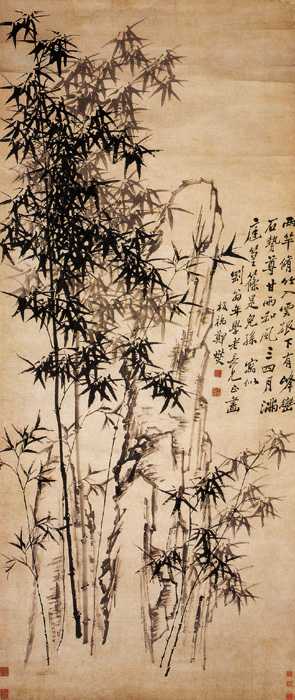 兩竿脩竹入雲根下有峰巒
石勢尊甘雨和風三四月滿
庭篁篠是兒孫
學老長兄正畫
板橋鄭燮